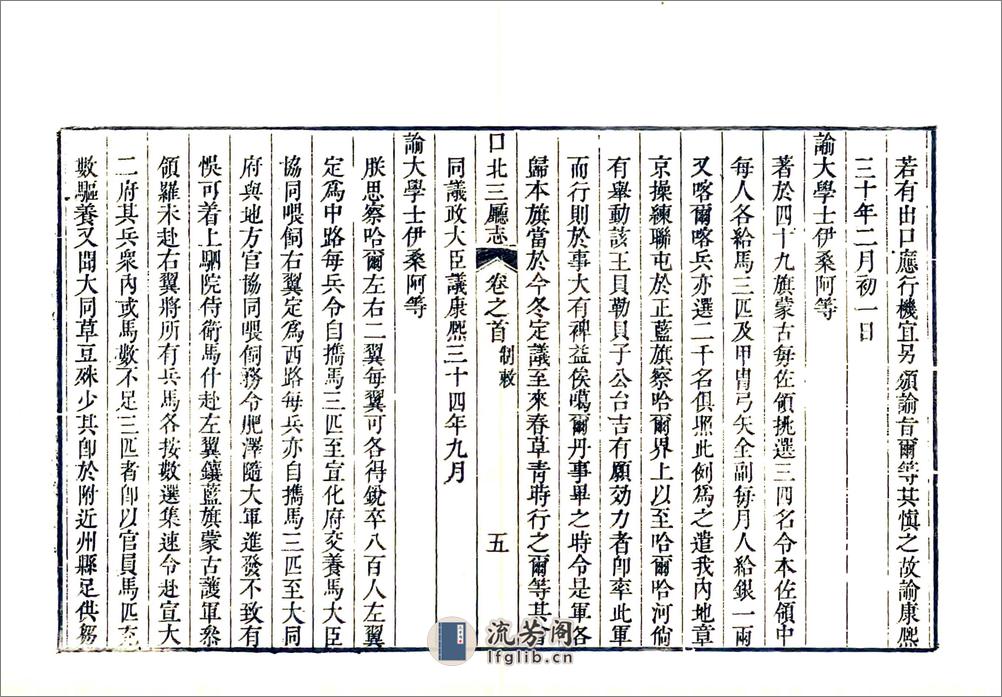 若有出口應行機宜另頒諭旨爾等其慎之故諭康熙
三十年二月初一日
諭大學士伊桑阿等
著於四十九旗蒙古每佐領挑選三四名令本佐領中
每人各給馬三匹及甲冑弓矢全副每月人給銀一兩
又喀爾喀兵亦選二千名俱照此例爲之遣我內地章
京操練聯屯於正藍旗察哈爾界上以至哈爾哈河倘
有舉動該王貝勒貝子公台吉有願効力者卽率此軍
而行則於事大有裨益俟噶爾丹事畢之時令是軍各
歸本旗當於今冬定議至來春草靑時行之爾等其會
口北三廳志 卷之首 制敕 五
同議政大臣議康熙三十四年九月
諭大學士伊桑阿等
朕思察哈爾左右二翼每翼可各得銳卒八百人左翼
定爲中路每兵令自攜馬三匹至宣化府交養馬大臣
協同喂飼右翼定爲西路每兵亦自攜馬三匹至大同
府與地方官協同喂飼務令肥澤隨大軍進發不致有
悞可着上駟院侍衛馬什赴左翼鑲藍旗蒙古護軍叅
領羅禾赴右翼將所有兵馬各按數選集速令赴宣大
二府其兵衆內或馬數不足三匹者卽以官員馬匹充
數驅養又聞大同草豆殊少其卽於附近州縣足供芻
流芳阁
lfglib.cn